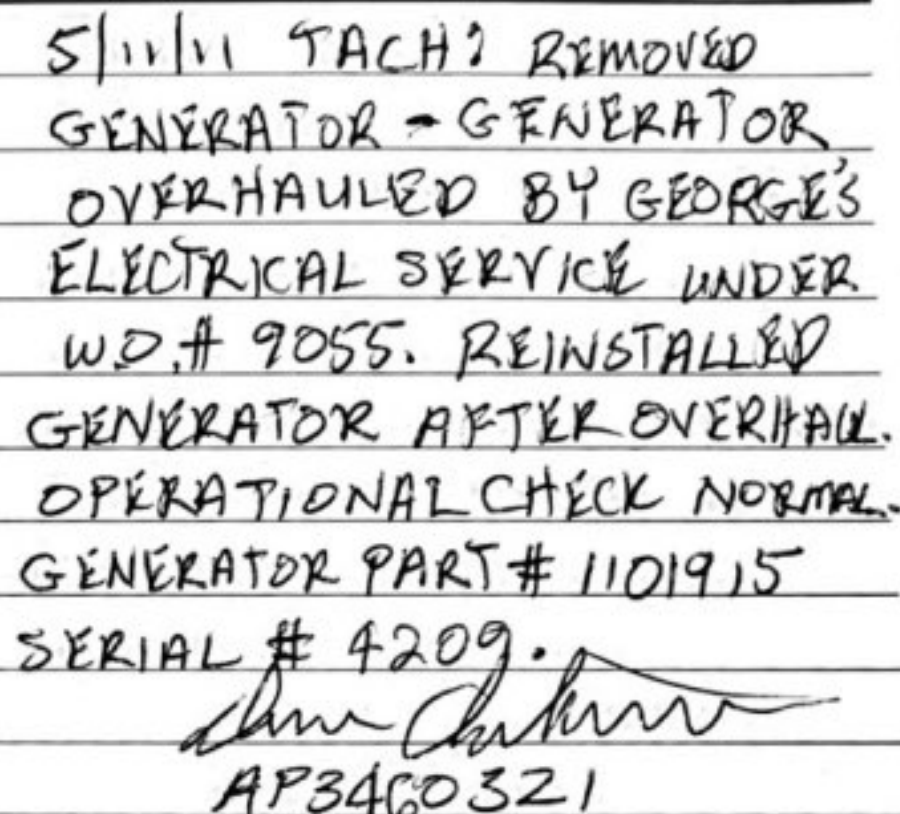 5/11/11 TACH? REMOVED
GENERATOR - GENERATOR
OVERHAULED BY GEORGE'S
ELECTRICAL SERVICE UNDER
W.O.# 9055. REINSTALLED
GENERATOR AFTER OVERHAUL.
OPERATIONAL CHECK NORMAL.
GENERATOR PART # 1101915
SERIAL # 4209.
AP3460321